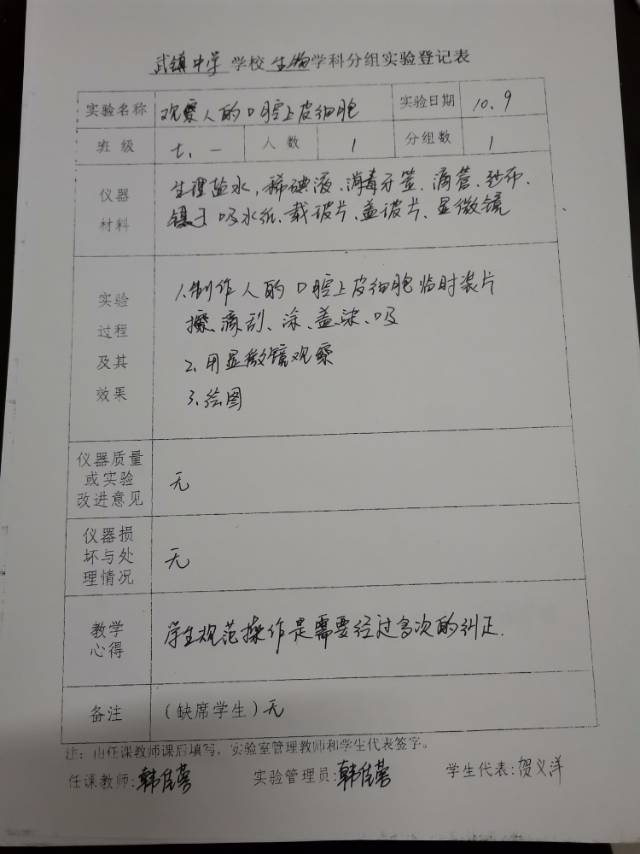 武镇中学 学校 生物 学科分组实验登记表
实验名称 观察人的口腔上皮细胞 实验日期 10.9
班级 七.一 人数 1 分组数 1
仪器材料 生理盐水、稀碘液、消毒牙签、滴管、纱布、
镊子 吸水纸、载玻片、盖玻片、显微镜
实验过程及其效果 1.制作人的口腔上皮细胞临时装片
擦、滴、刮、涂、盖、染、吸
2.用显微镜观察
3.绘图
仪器质量或实验改进意见 无
仪器损坏与处理情况 无
教学心得 学生规范操作是需要经过多次的纠正.
备注 (缺席学生)无
注:由任课教师课后填写,实验室管理教师和学生代表签字。
任课教师:韩佳蓉 实验管理员:韩佳蓉 学生代表:贺义洋